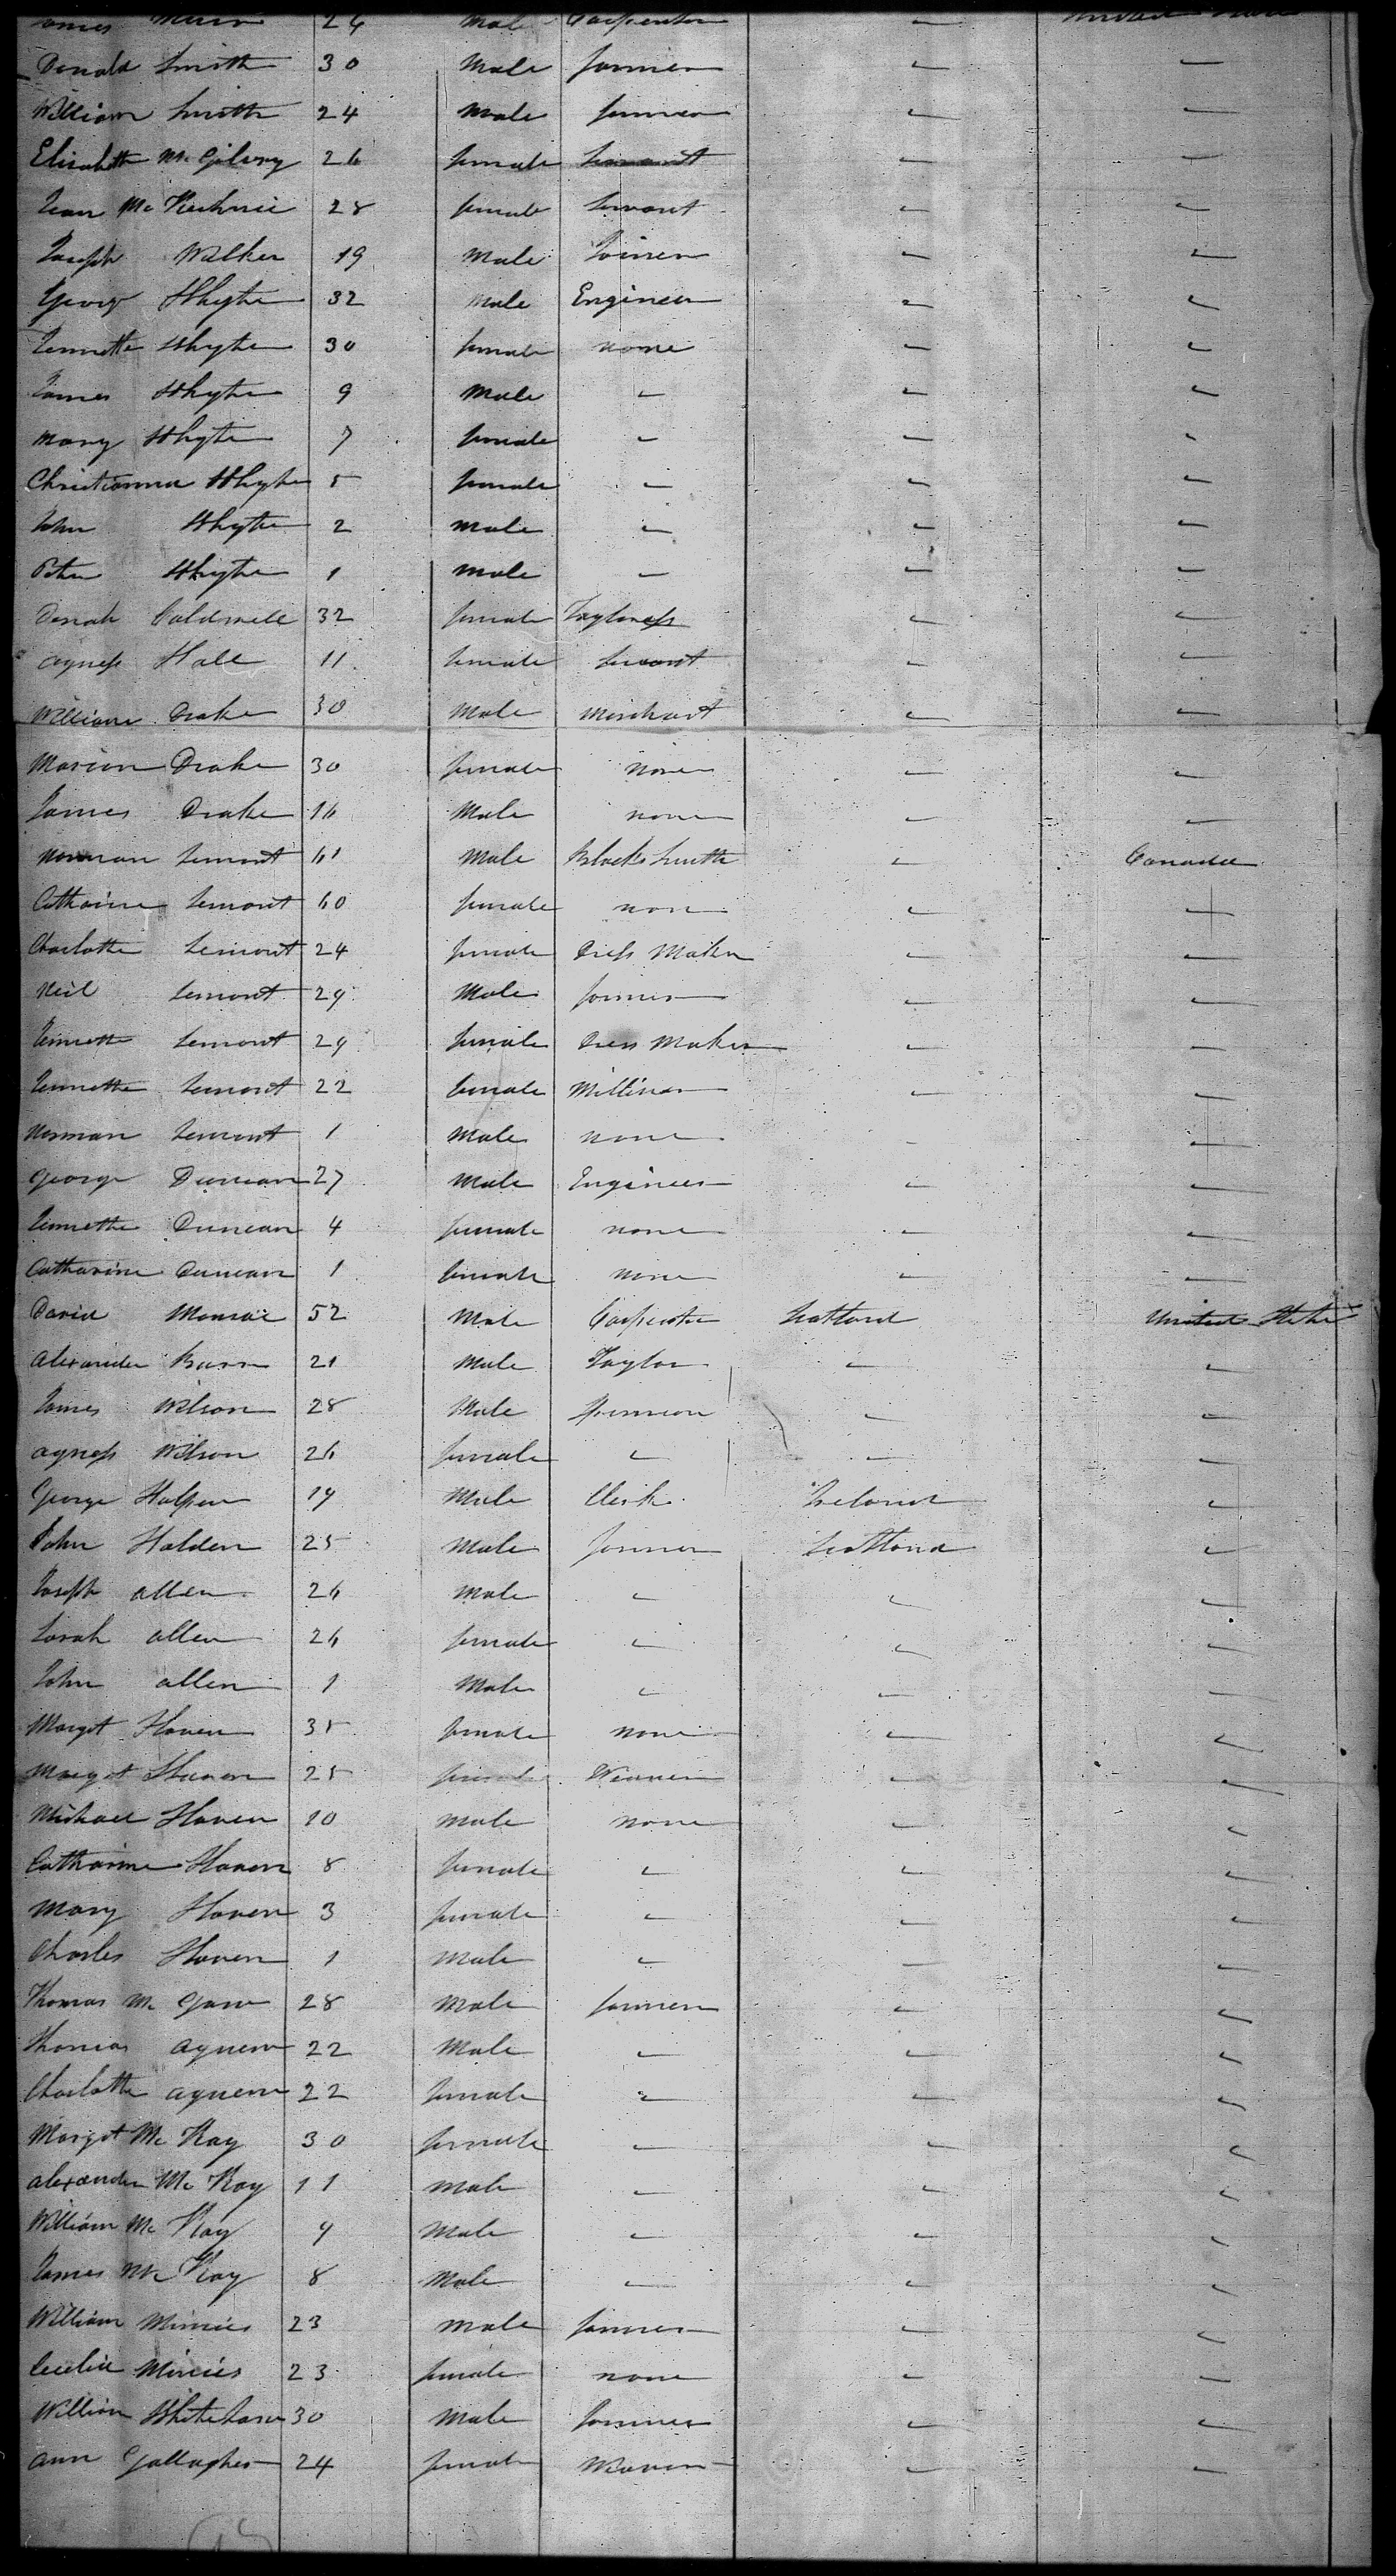 James 26 Male Carpenter United States
Donald Smith 30 Male farmer
William Smith 24 Male farmer
Elisabeth Mc Gilvry 26 female Servant
Jean Mc Kechnie 28 female Servant
Joseph Walker 19 Male Joiner
George Whyte 32 Male Engineer
Jennette Whyte 30 female none
James Whyte 9 Male
Mary Whyte 7 female
Christianna Whyte 5 female
John Whyte 2 Male
Peter Whyte 1 Male
Caldwell 32 female Tayloress
Agness Hall 11 female Servant
William Drake 30 Male Merchant
Marion Drake 30 female none
James Drake 16 Male none
Norman Lemont 61 Male Black Smith Canada
Catharine Lemont 60 female none
Charlotte Lemont 24 female Dress Maker
Neil Lemont 29 Male farmer
Jennette Lemont 29 female Dress Maker
Jennette Lemont 22 female Milliner
Norman Lemont 1 Male none
George Duncan 27 Male Engineer
Jennette Duncan 4 female none
Catharine Duncan 1 female none
David Monroe 52 Male Carpenter Scotland United States
Alexander 21 Male Taylor
James Wilson 28 Male
Agness Wilson 26 female
George Halpen 19 Male Clerk Ireland
John Halden 25 Male farmer Scotland
Joseph Allen 26 Male
Sarah Allen 26 female
John Allen 1 Male
Margt Haven 35 female none
Margt Haven 25 female Weaver
Michael Haven 10 Male none
Catharine Haven 8 female
Mary Haven 3 female
Charles Haven 1 Male
Thomas Mc Gaw 28 Male farmer
Thomas Agnew 22 Male
Charlotte Agnew 22 female
Margt Mc Kay 30 female
Alexander Mc Kay 11 Male
William Mc Kay 9 Male
James Mc Kay 8 Male
William 23 Male farmer
Cecelia 23 female none
William 30 Male farmer
Ann Gallagher 24 female Weaver